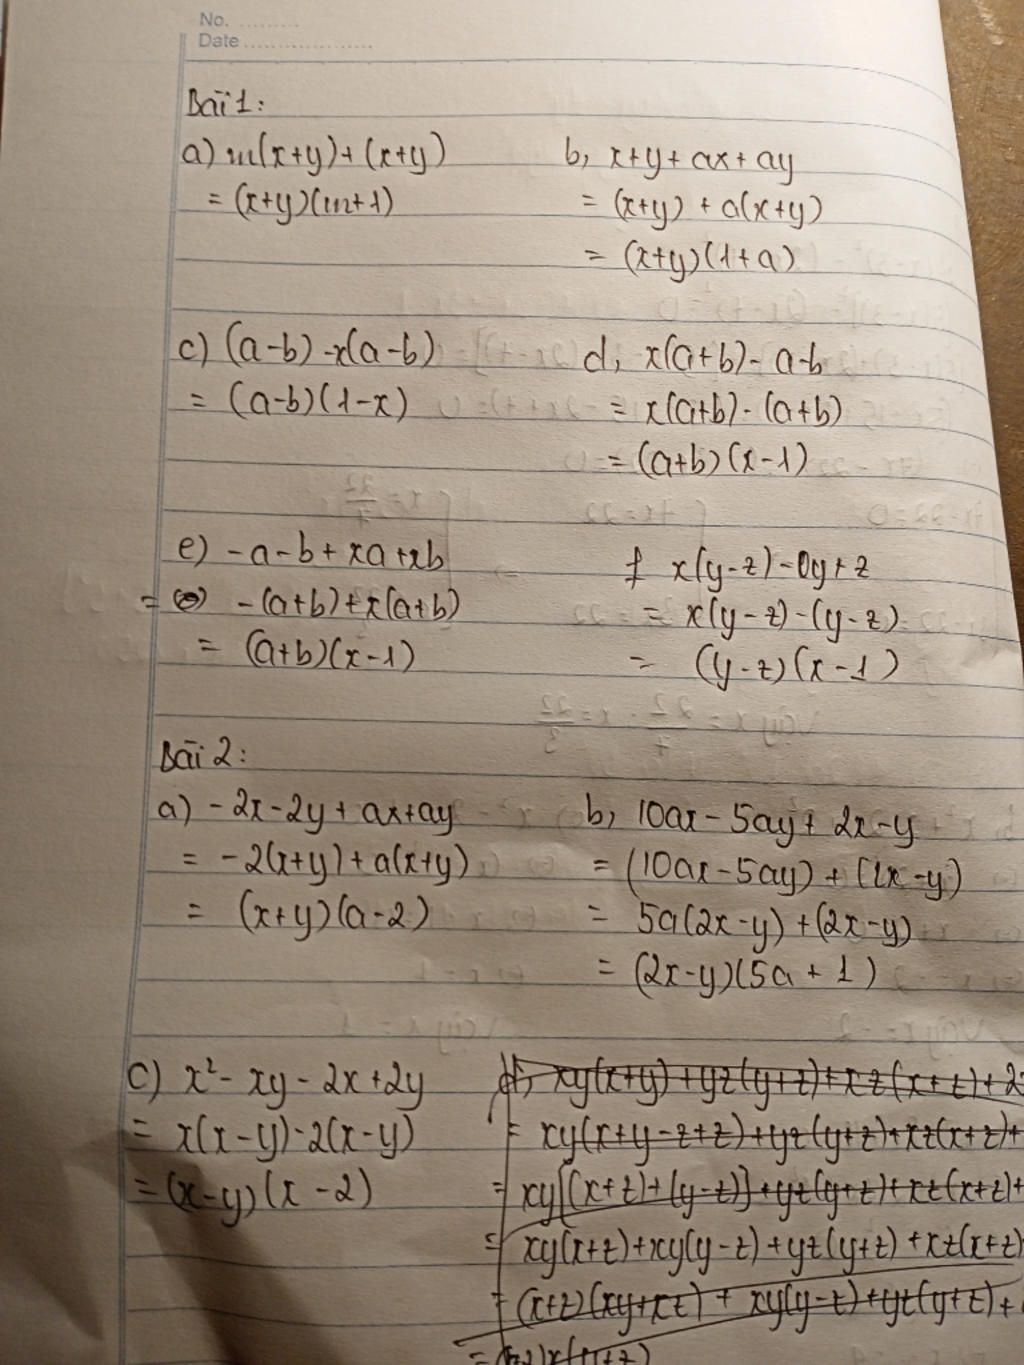 No. .........
Date ...................
Bài 1:
a) m(x+y)+(x+y)
= (x+y)(m+1)
b, x+y+ax+ay
= (x+y) + a(x+y)
= (x+y)(1+a)
c) (a-b) -x(a-b)
= (a-b)(1-x)
d, x(a+b)- a-b
= x(a+b)-(a+b)
= (a+b)(x-1)
e) -a-b+xa+xb
= -(a+b)+x(a+b)
= (a+b)(x-1)
f x(y-z)-0y+z
= x(y-z)-(y-z)
= (y-z)(x-1)
Bài 2:
a) -2x-2y+ax+ay
= -2(x+y)+a(x+y)
= (x+y)(a-2)
b, 10ax-5ay+2x-y
= (10ax-5ay)+(2x-y)
= 5a(2x-y)+(2x-y)
= (2x-y)(5a+1)
c) x²-xy-2x+2y
= x(x-y)-2(x-y)
= (x-y)(x-2)
xy(x+y)+yz(y+z)+xz(x+z)+2
= xy(x+y-z+z)+yz(y+z)+xz(x+z)+
= xy[(x+z)+(y-z)]+yz(y+z)+xz(x+z)+
= xy(x+z)+xy(y-z)+yz(y+z)+xz(x+z)
= (x+z)(xy+xz)+xy(y-z)+yz(y+z)+